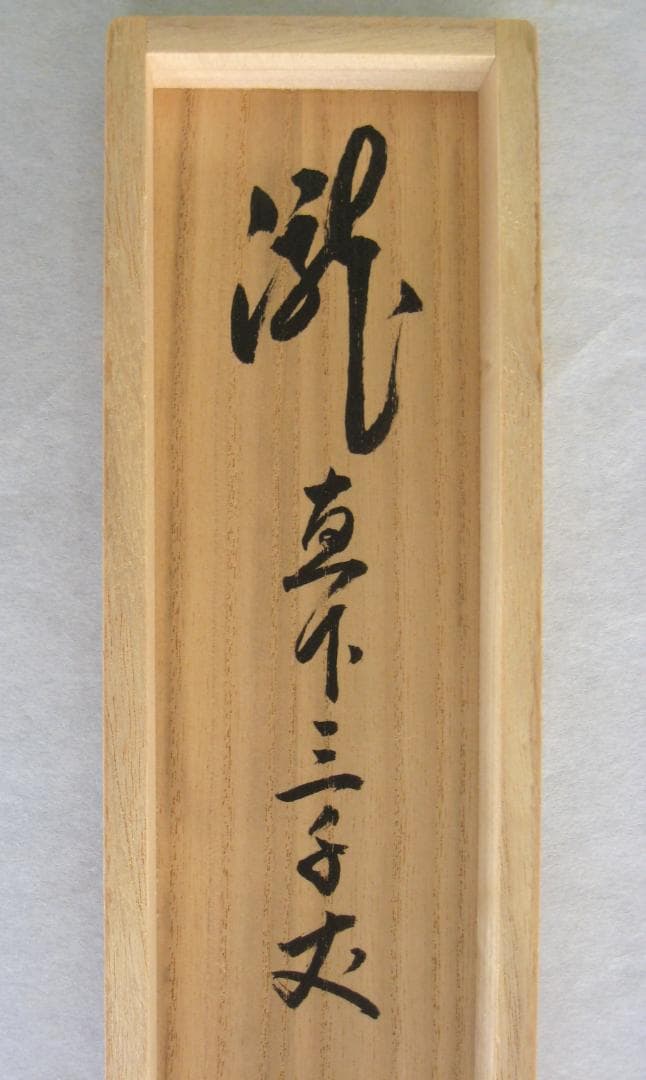 瀧直下三千丈